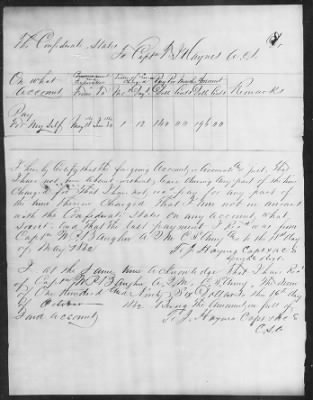 The Confederate States
To Capt T. J. Haynes A. C. S. Dr
On what Account
Commencement and Expiration
From To
Time of Service Charg'd
Mo Days
Pay Per Month
Doll Cents
Amount
Doll Cents
Remarks
Pay
For My Self
1 12 140 00 196 00
I hereby certify that the foregoing Account is accurate & just, that
I have not been absent without leave During any part of the time
Charged for that I have not rec'd pay for any part of
the time therein Charged that I am not in arrears
with the Confederate States on any account what
soever and that the last payment I Rec'd was from
Capt W. Vaughn A. Q. M. C. S. Army to the 18th day
of May 1862
T. J. Haynes Capt & A. C. S.
I at the Same time Acknowledge that I have Rec'd
of Capt Vaughn A. Q. M. C. S. Army the Sum
of One Hundred and Ninety Six Dollars the 16th day
of October 1862 Being the Amount in full of
Said Account
T. J. Haynes Capt & A. C.
C. S. A.